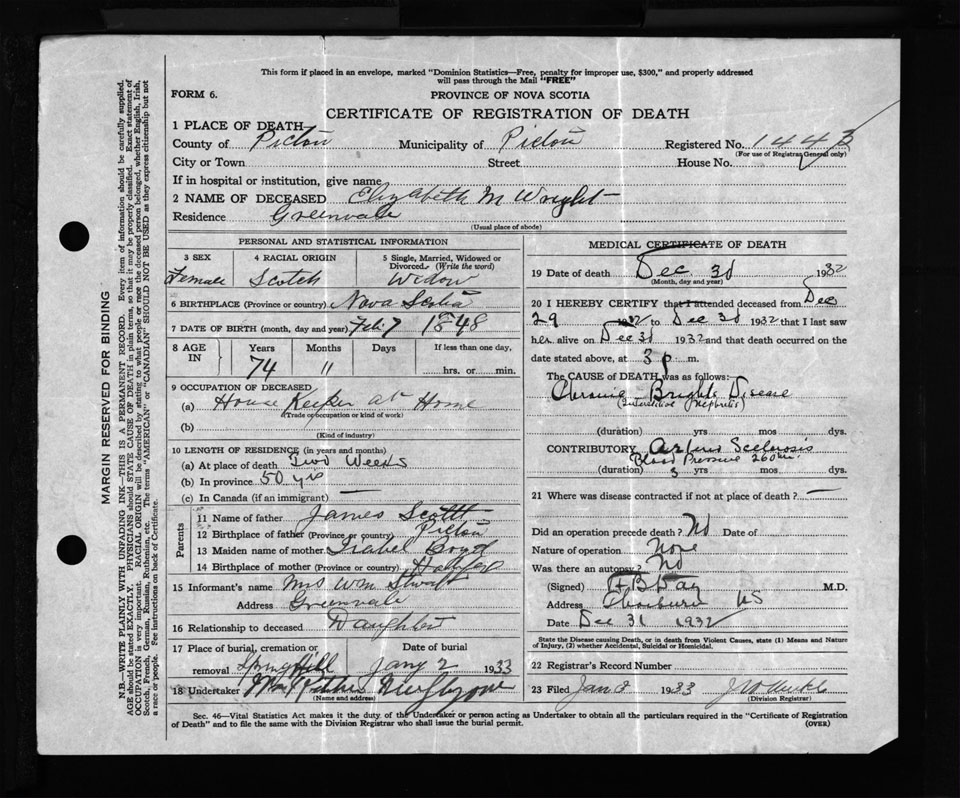 This form if placed in an envelope, marked "Dominion Statistics—Free, penalty for improper use, $300," and properly addressed
will pass through the Mail "FREE"
FORM 6.
PROVINCE OF NOVA SCOTIA
CERTIFICATE OF REGISTRATION OF DEATH
1 PLACE OF DEATH—
County of Pictou Municipality of Pictou Registered No. 1443
(For use of Registrar General only)
City or Town Street House No.
If in hospital or institution, give name
2 NAME OF DECEASED Elizabeth M Wright
Residence Greenvale
(Usual place of abode)
PERSONAL AND STATISTICAL INFORMATION
3 SEX 4 RACIAL ORIGIN 5 Single, Married, Widowed or Divorced. (Write the word)
Female Scotch Widow
6 BIRTHPLACE (Province or country) Nova Scotia
7 DATE OF BIRTH (month, day and year) Feb 7 1848
8 AGE IN Years Months Days If less than one day,
74 11 hrs. or min.
9 OCCUPATION OF DECEASED
(a) House Keeper at Home
(Trade or occupation or kind of work)
(b)
(Kind of industry)
10 LENGTH OF RESIDENCE (in years and months)
(a) At place of death Two Weeks
(b) In province 50 yrs
(c) In Canada (if an immigrant) —
Parents
11 Name of father James Scott
12 Birthplace of father (Province or country) Pictou
13 Maiden name of mother Isabel Boyd
14 Birthplace of mother (Province or country)
15 Informant's name Mrs Wm Stewart
Address Greenvale
16 Relationship to deceased Daughter
17 Place of burial, cremation or removal Date of burial
Springville Jany 2 1933
18 Undertaker
(Name and address)
MEDICAL CERTIFICATE OF DEATH
19 Date of death Dec 30 1932
(Month, day and year)
20 I HEREBY CERTIFY that I attended deceased from Dec
29 1932 to Dec 30 1932 that I last saw
her alive on Dec 30 1932 and that death occurred on the
date stated above, at 3 p. m.
The CAUSE of DEATH was as follows:
Chronic Brights Disease
(Interstitial Nephritis)
(duration) yrs mos dys.
CONTRIBUTORY Arterio Sclerosis
Blood Pressure 260
(duration) 3 yrs mos dys.
21 Where was disease contracted if not at place of death? —
Did an operation precede death? No Date of
Nature of operation None
Was there an autopsy? No
(Signed) F B Day M.D.
Address Thorburn NS
Date Dec 31 1932
State the Disease causing Death, or in death from Violent Causes, state (1) Means and Nature
of Injury, (2) whether Accidental, Suicidal or Homicidal.
22 Registrar's Record Number
23 Filed Jan 1933
(Division Registrar)
Sec. 46—Vital Statistics Act makes it the duty of the Undertaker or person acting as Undertaker to obtain all the particulars required in the "Certificate of Registration
of Death" and to file the same with the Division Registrar who shall issue the burial permit.
(OVER)
MARGIN RESERVED FOR BINDING
N.B.—WRITE PLAINLY WITH UNFADING INK—THIS IS A PERMANENT RECORD. Every item of information should be carefully supplied.
AGE should be stated EXACTLY. PHYSICIANS should STATE CAUSE OF DEATH in plain terms, so that it may be properly classified. Exact statement of
OCCUPATION is very important. RACIAL ORIGIN will be described by stating to what people or race the deceased person belonged, whether English, Irish,
Scotch, French, German, Russian, Ruthenian, etc. The terms "AMERICAN" or "CANADIAN" SHOULD NOT BE USED as they express citizenship but not
a race or people. See instructions on back of Certificate.